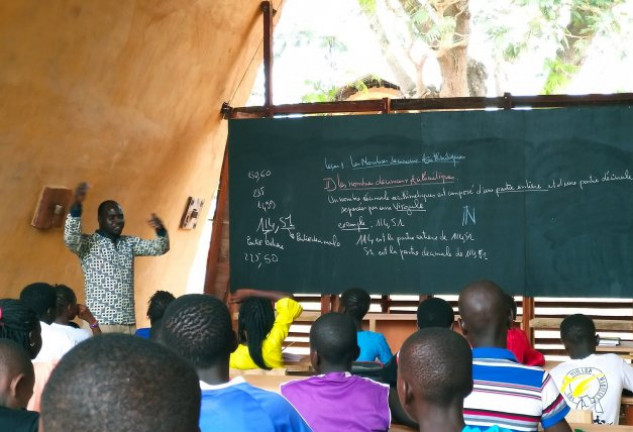 60,60
Leçon 1 Les Nombres décimaux Arithmétiques
I) Les nombres décimaux Arithmétiques
Un nombre décimale arithmétique est composé d'une partie entière et d'une partie décimale
séparés par une Virgule
114,51
exemple 114,51
ℕ
Partie entière
Partie décimale
114 est la partie entière de 114,51
51 est la partie décimale de 114,51
225,50